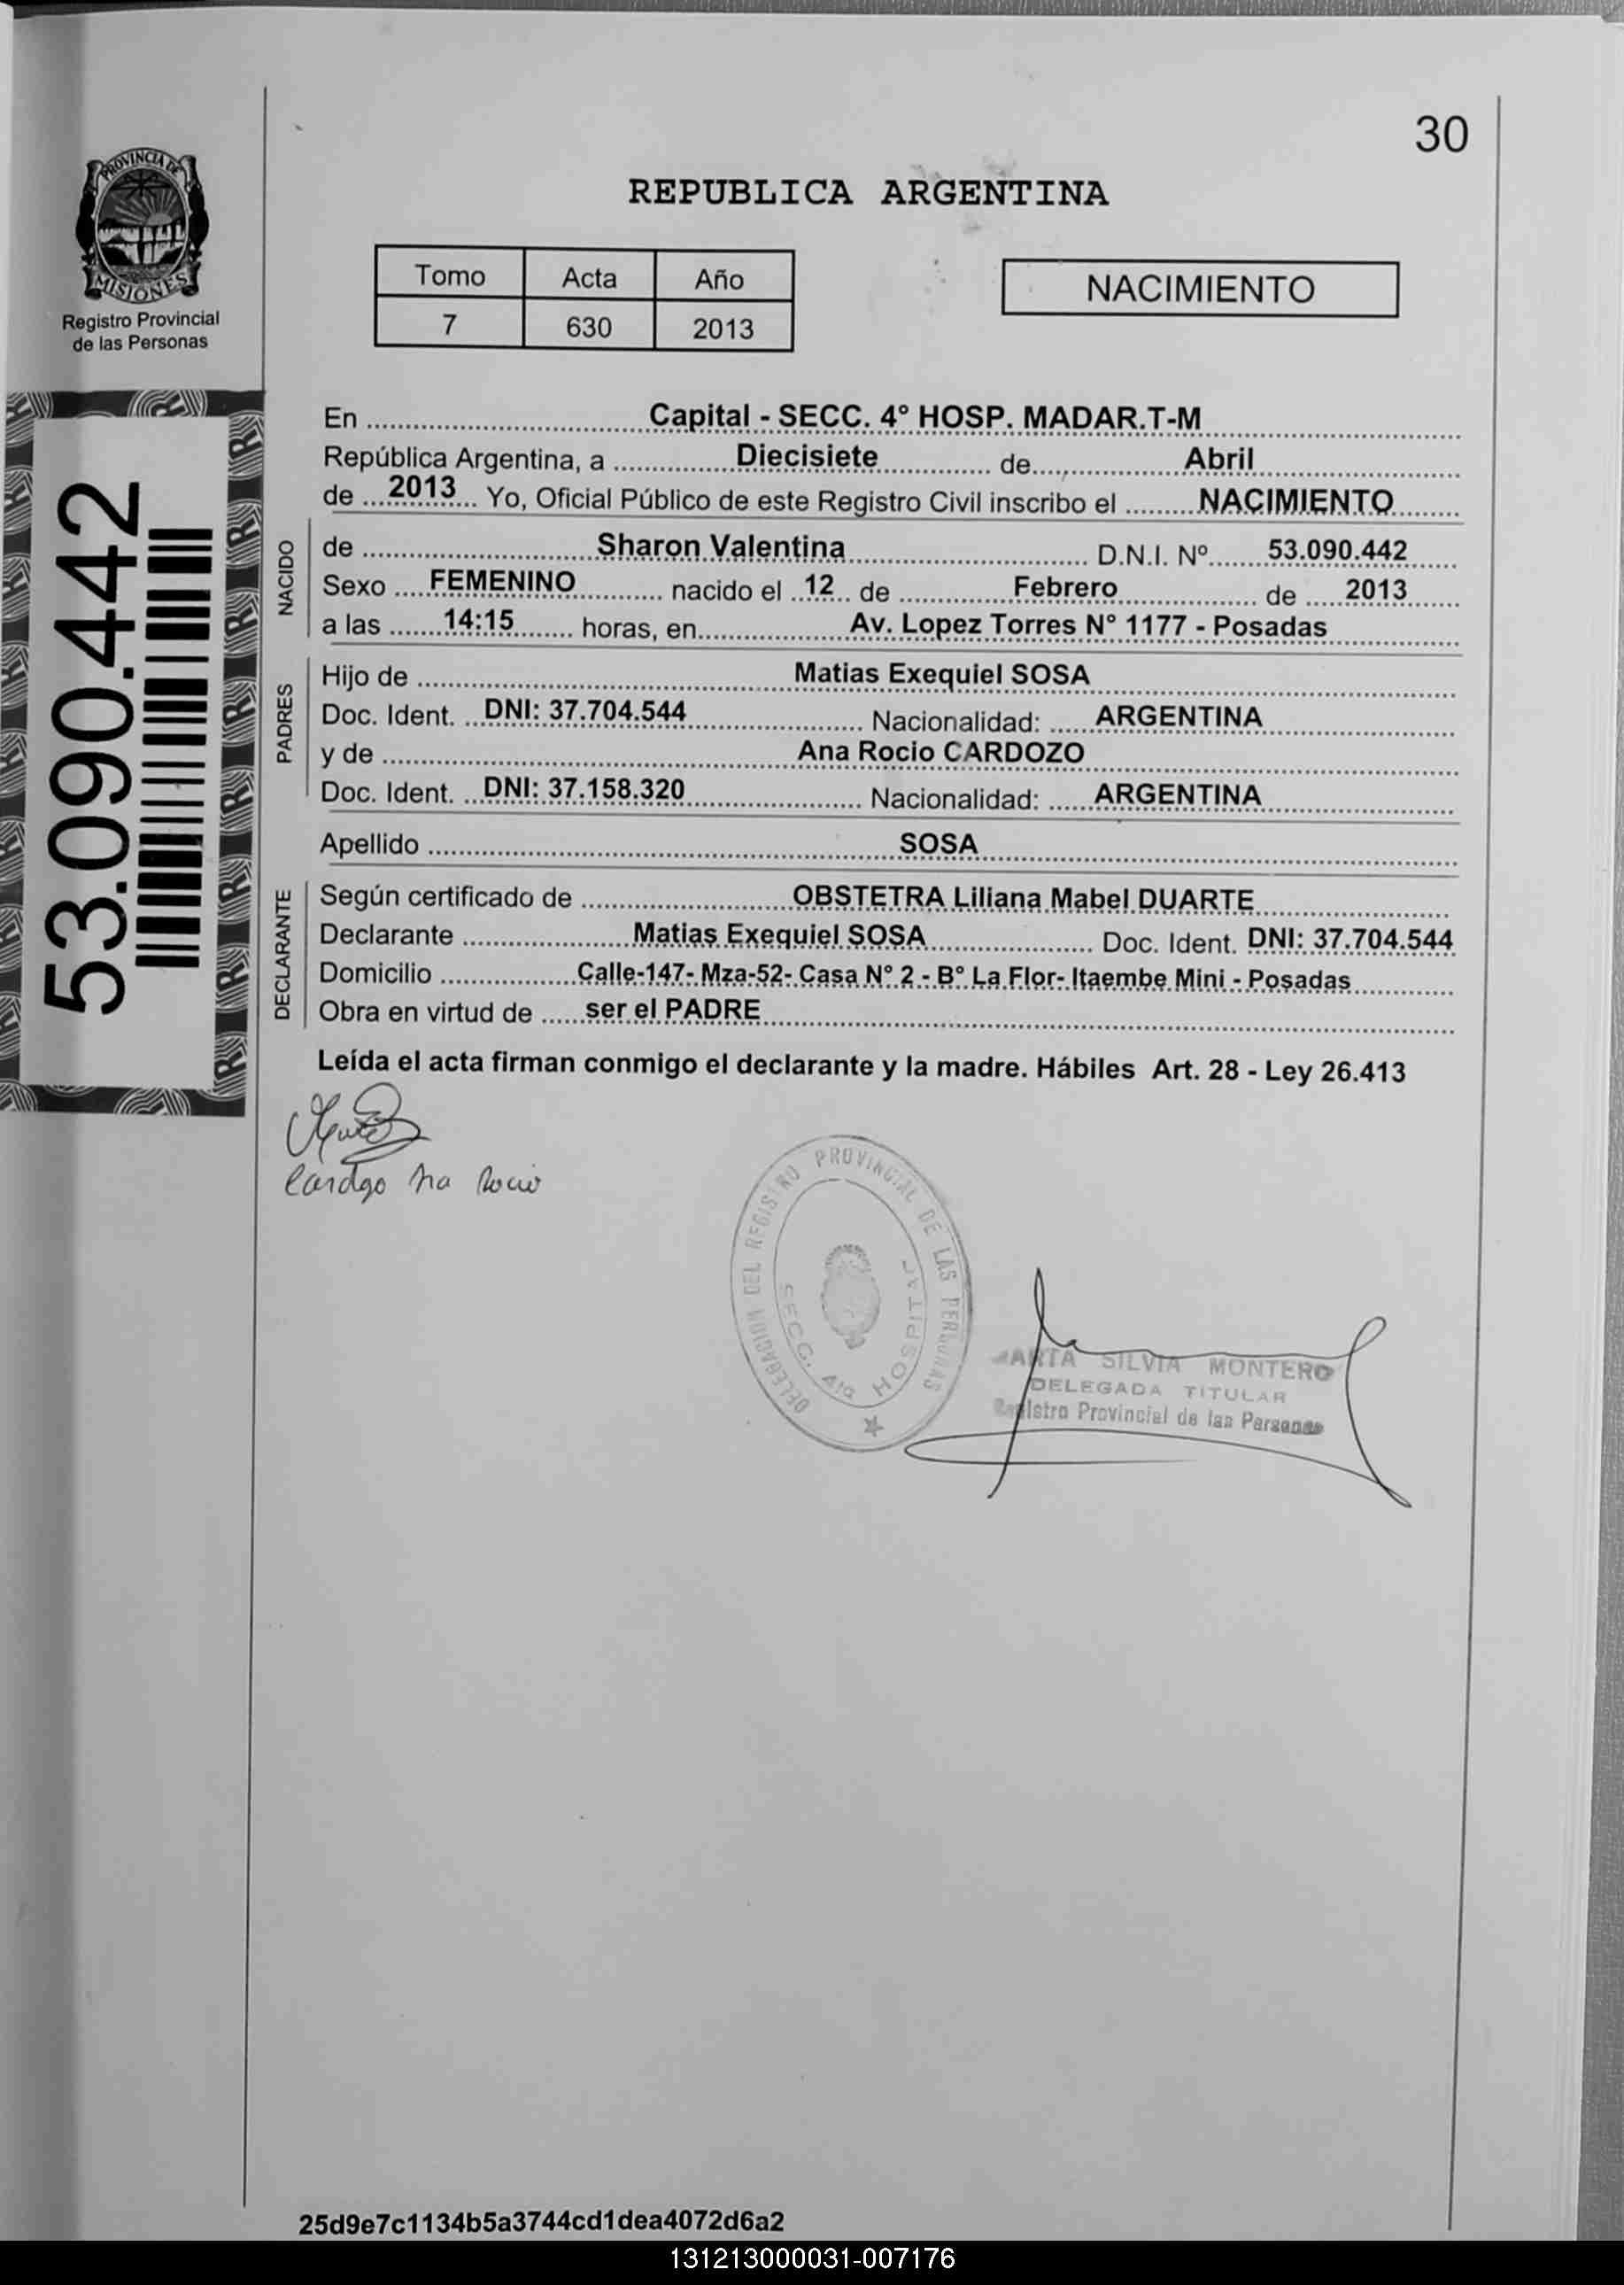 30
PROVINCIA DE
MISIONES
Registro Provincial
de las Personas
REPUBLICA ARGENTINA
Tomo Acta Año
7 630 2013
NACIMIENTO
53.090.442
En ..... Capital - SECC. 4° HOSP. MADAR.T-M
República Argentina, a ..... Diecisiete ..... de ..... Abril
de ... 2013 ... Yo, Oficial Público de este Registro Civil inscribo el ..... NACIMIENTO
NACIDO
de ..... Sharon Valentina ..... D.N.I. Nº ..... 53.090.442
Sexo .... FEMENINO ..... nacido el .. 12 .. de ..... Febrero ..... de ..... 2013
a las ..... 14:15 ..... horas, en ..... Av. Lopez Torres N° 1177 - Posadas
PADRES
Hijo de ..... Matias Exequiel SOSA
Doc. Ident. ... DNI: 37.704.544 ..... Nacionalidad: ..... ARGENTINA
y de ..... Ana Rocio CARDOZO
Doc. Ident. ... DNI: 37.158.320 ..... Nacionalidad: ..... ARGENTINA
Apellido ..... SOSA
DECLARANTE
Según certificado de ..... OBSTETRA Liliana Mabel DUARTE
Declarante ..... Matias Exequiel SOSA ..... Doc. Ident. DNI: 37.704.544
Domicilio ..... Calle-147- Mza-52- Casa N° 2 - B° La Flor- Itaembe Mini - Posadas
Obra en virtud de ..... ser el PADRE
Leída el acta firman conmigo el declarante y la madre. Hábiles Art. 28 - Ley 26.413
Rocio
DELEGACION DEL REGISTRO PROVINCIAL DE LAS PERSONAS
SECC. 4ta HOSPITAL
SILVIA MONTERO
DELEGADA TITULAR
Registro Provincial de las Personas
25d9e7c1134b5a3744cd1dea4072d6a2
131213000031-007176